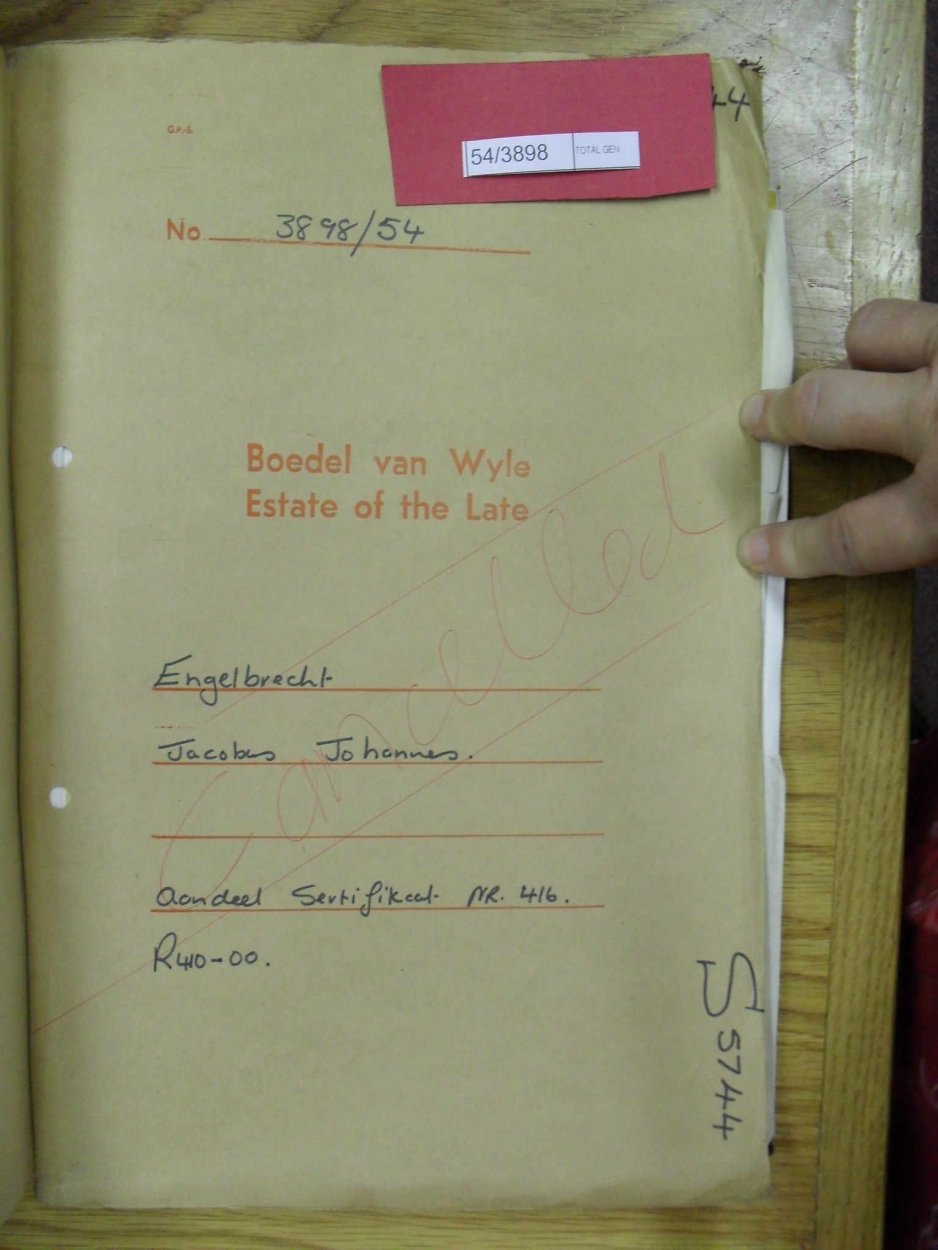 44
G.P.-S.
54/3898 TOTAL GEN
No 3898/54
Boedel van Wyle
Estate of the Late
Cancelled
Engelbrecht
Jacobus Johannes.
Aandeel Sertifikaat NR. 416.
R410-00.
S5744